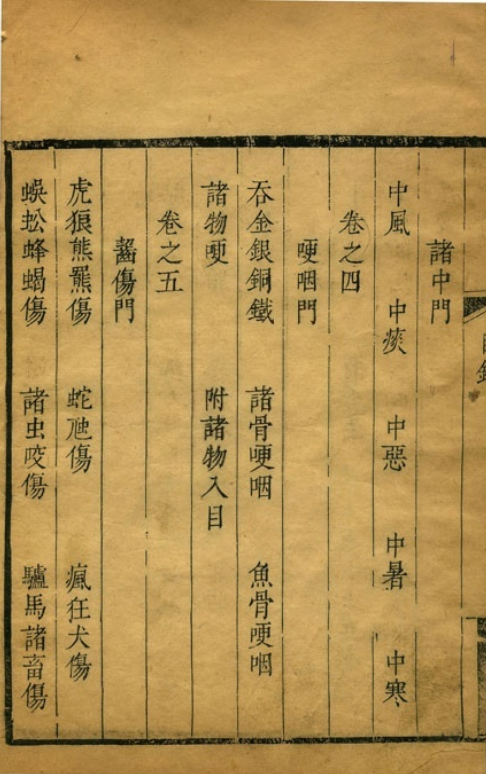 諸中門
中風 中痰 中惡 中暑 中寒
卷之四
哽咽門
吞金銀銅鐵 諸骨哽咽 魚骨哽咽
諸物哽 附諸物入目
卷之五
齧傷門
虎狼熊羆傷 蛇虺傷 瘋狂犬傷
蜈蚣蜂蝎傷 諸虫咬傷 驢馬諸畜傷